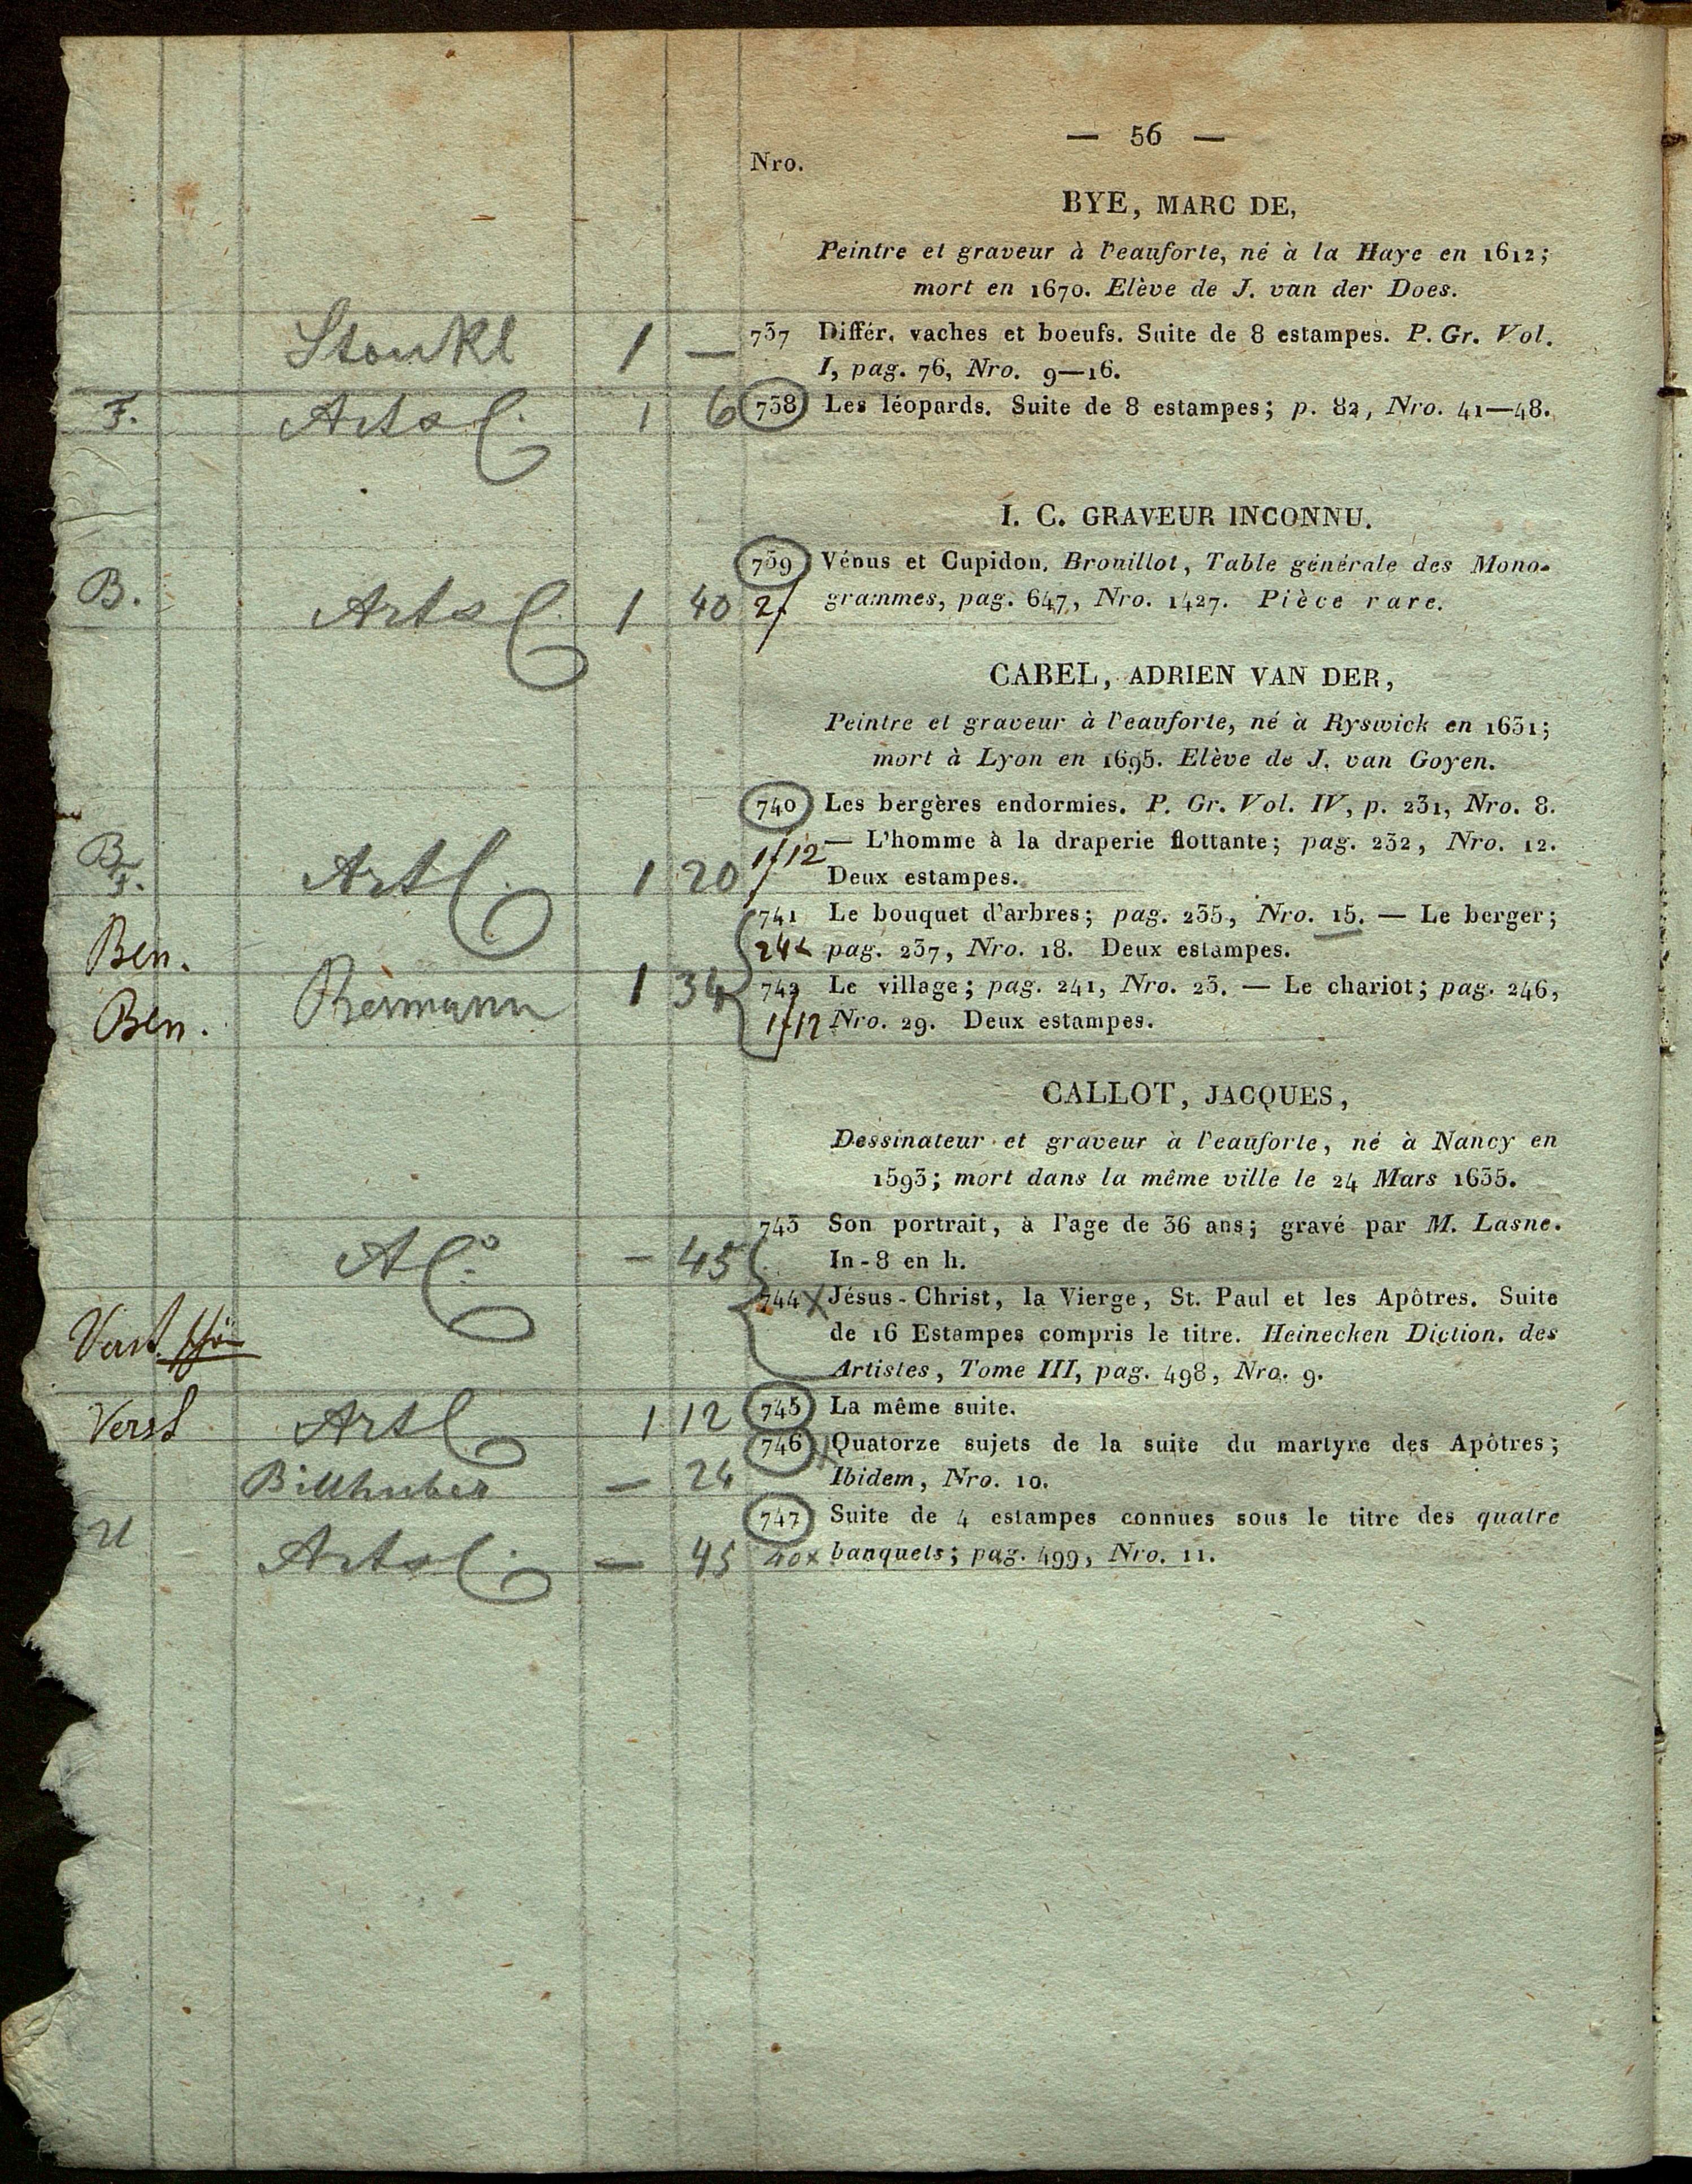 — 56 —
Nro.
BYE, MARC DE,
Peintre et graveur à l'eauforte, né à la Haye en 1612;
mort en 1670. Elève de J. van der Does.
1 — 737 Différ. vaches et boeufs. Suite de 8 estampes. P. Gr. Vol.
I, pag. 76, Nro. 9—16.
F. 1 6 738 Les léopards. Suite de 8 estampes; p. 82, Nro. 41—48.
I. C. GRAVEUR INCONNU.
739 Vénus et Cupidon, Brouillot, Table générale des Mono-
B. 1 40 grammes, pag. 647, Nro. 1427. Pièce rare.
CABEL, ADRIEN VAN DER,
Peintre et graveur à l'eauforte, né à Ryswick en 1631;
mort à Lyon en 1695. Elève de J. van Goyen.
740 Les bergères endormies. P. Gr. Vol. IV, p. 231, Nro. 8.
— L'homme à la draperie flottante; pag. 232, Nro. 12.
Artl 1 20 Deux estampes.
741 Le bouquet d'arbres; pag. 235, Nro. 15. — Le berger;
Ben. pag. 237, Nro. 18. Deux estampes.
1 34 742 Le village; pag. 241, Nro. 23. — Le chariot; pag. 246,
Ben. Nro. 29. Deux estampes.
CALLOT, JACQUES,
Dessinateur et graveur à l'eauforte, né à Nancy en
1593; mort dans la même ville le 24 Mars 1635.
743 Son portrait, à l'age de 36 ans; gravé par M. Lasne.
— 45 In-8 en h.
744 Jésus-Christ, la Vierge, St. Paul et les Apôtres. Suite
de 16 Estampes compris le titre. Heinecken Diction. des
Artistes, Tome III, pag. 498, Nro. 9.
Verst Artl 1 12 745 La même suite.
746 Quatorze sujets de la suite du martyre des Apôtres;
Billhuber — 24 Ibidem, Nro. 10.
747 Suite de 4 estampes connues sous le titre des quatre
— 45 40x banquets; pag. 499, Nro. 11.